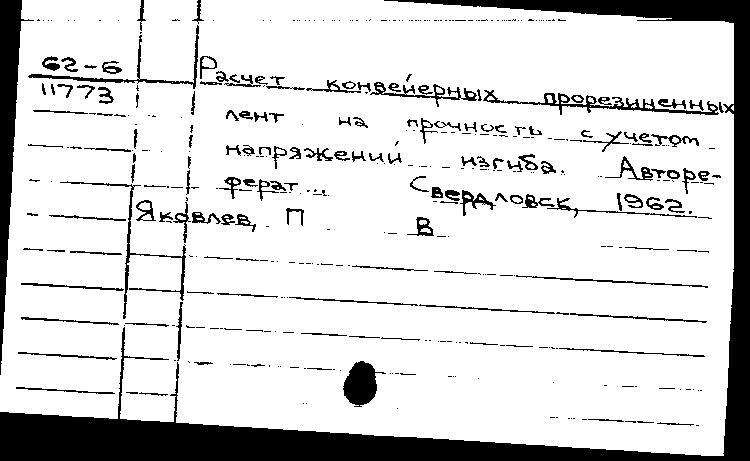 62-6 Расчет конвейерных прорезиненных
11773
лент на прочность с учетом
напряжений изгиба. Авторе-
ферат... Свердловск, 1962.
Яковлев, П В